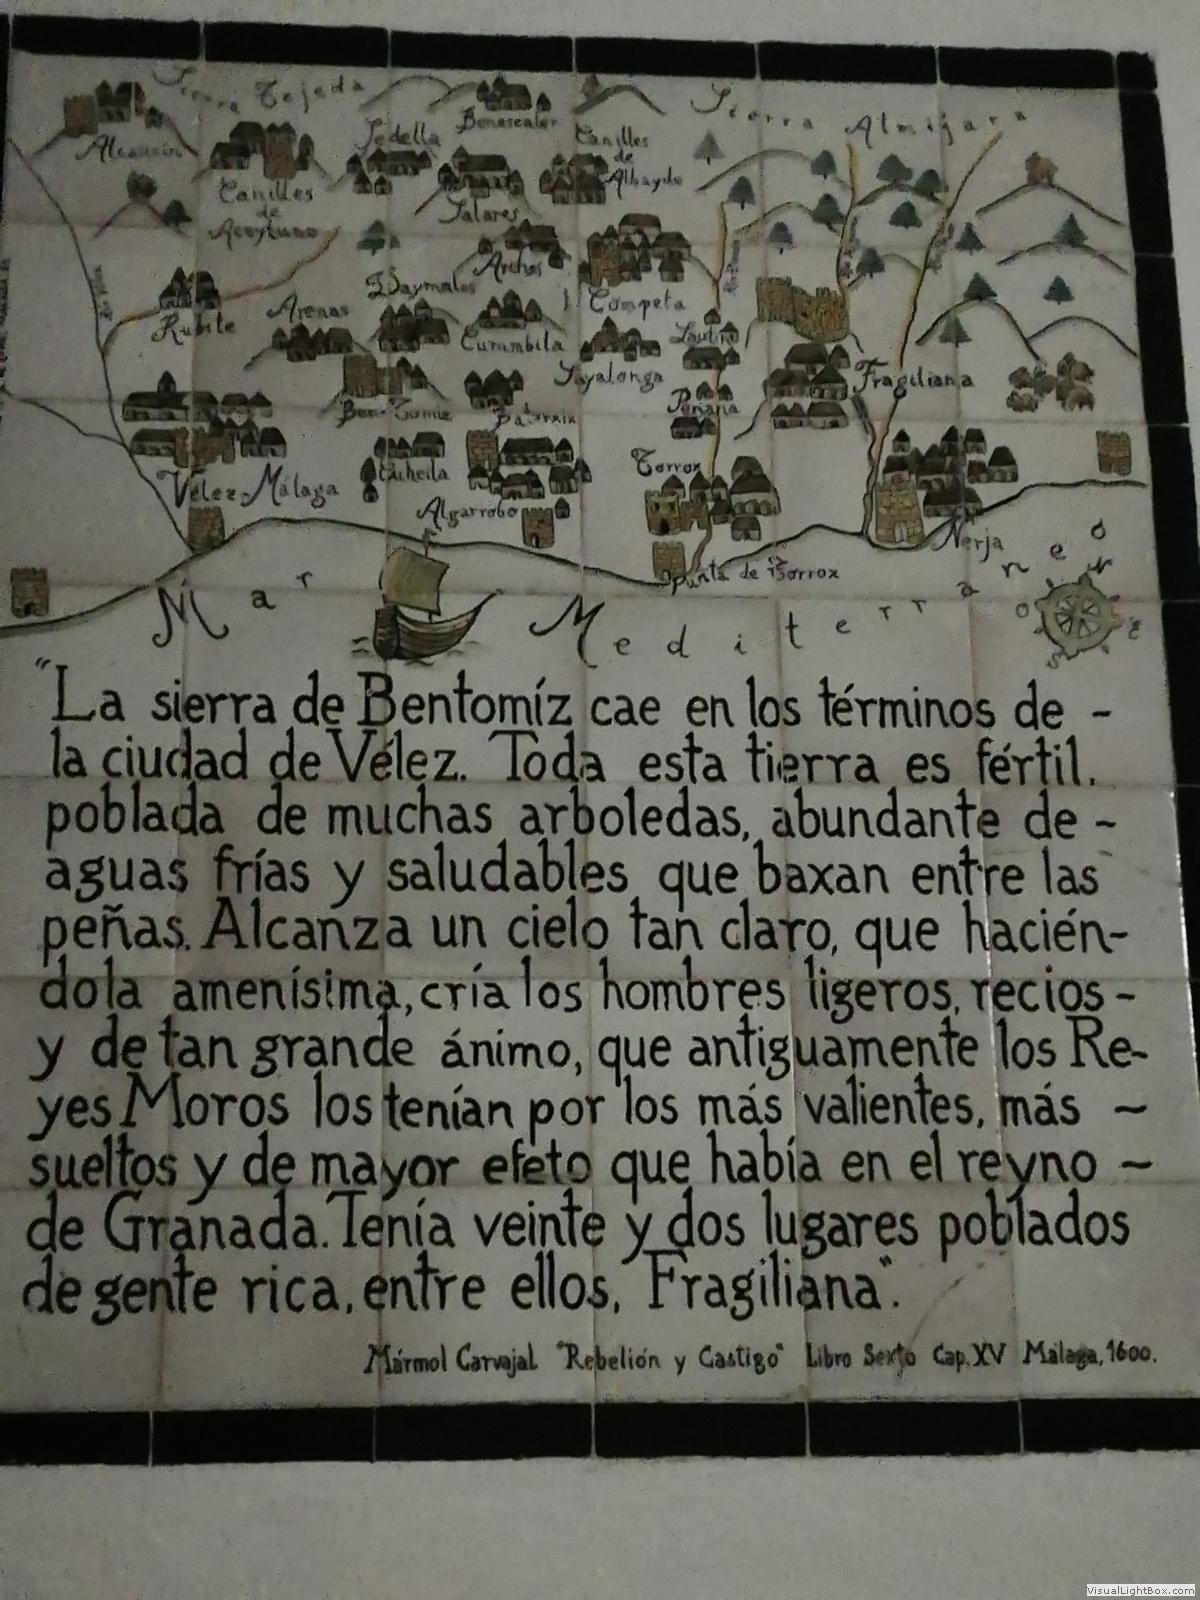 Sierra Tejeda
Sierra Almijara
Alcaucín
Sedella
Benescaler
Canilles
de
Albayda
Canilles
de
Aceytuno
Salares
Arches
Daymalos
Competa
Rubite
Arenas
Curumbila
Sayalonga
Fragiliana
Periana
Ben-Tomiz
Batarxix
Torrox
Vélez-Málaga
Algarrobo
Nerja
Punta de Torrox
Mar Mediterraneo
N
O
E
S
"La sierra de Bentomíz cae en los términos de -
la ciudad de Vélez. Toda esta tierra es fértil,
poblada de muchas arboledas, abundante de -
aguas frías y saludables que baxan entre las
peñas. Alcanza un cielo tan claro, que hacién-
dola amenísima, cría los hombres ligeros, recios -
y de tan grande ánimo, que antiguamente los Re-
yes Moros los tenían por los más valientes, más ~
sueltos y de mayor efeto que había en el reyno ~
de Granada. Tenía veinte y dos lugares poblados
de gente rica, entre ellos, Fragiliana".
Mármol Carvajal "Rebelión y Castigo" Libro Sexto Cap. XV Málaga, 1600.
VisualLightBox.com